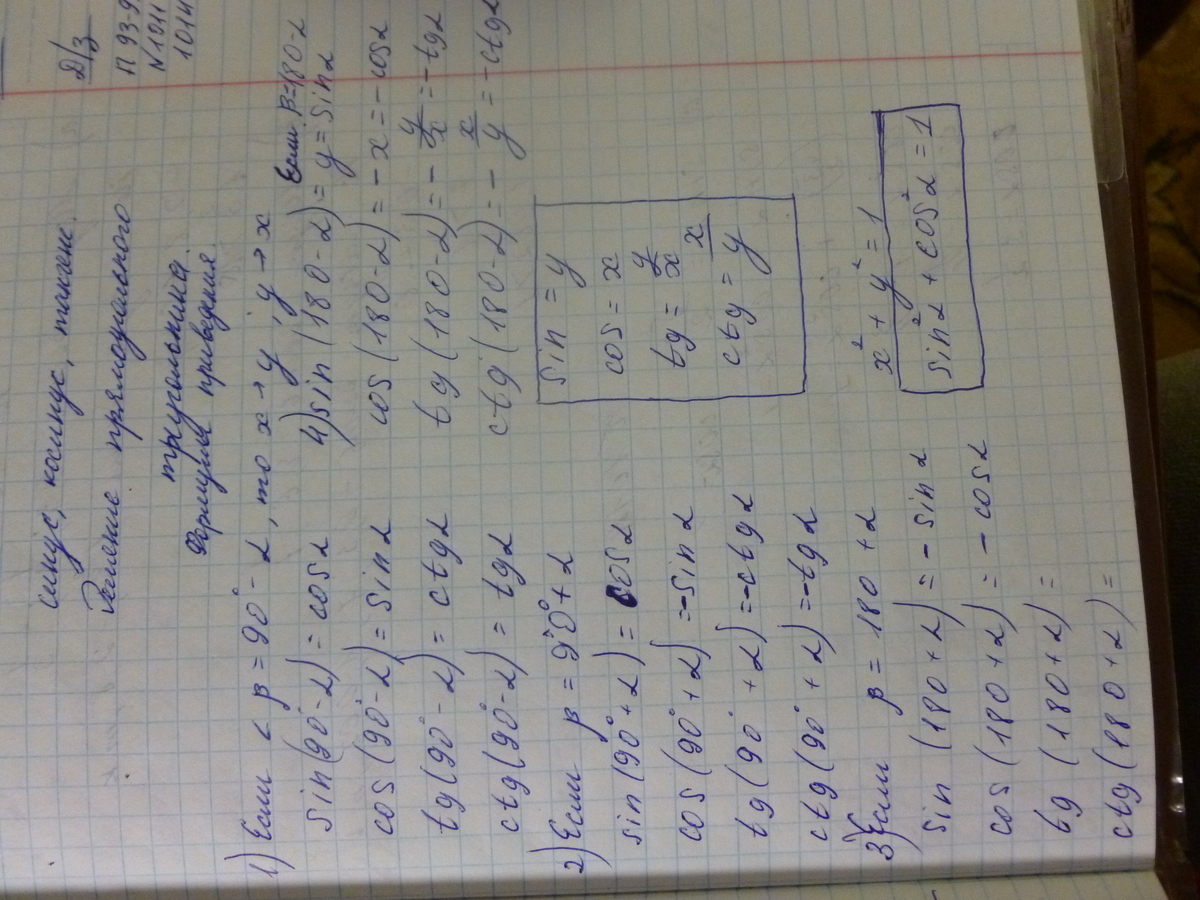 Д/з
П 93-9
N 1011
1014
синус, косинус, тангенс.
Решение прямоугольного
треугольника.
Формулы приведения
1) Если < β = 90° - α, то x → y, y → x
sin (90° - α) = cos α
cos (90° - α) = sin α
tg (90° - α) = ctg α
ctg (90° - α) = tg α
2) Если β = 90° + α
sin (90° + α) = cos α
cos (90° + α) = - sin α
tg (90° + α) = - ctg α
ctg (90° + α) = - tg α
3) Если β = 180 + α
sin (180 + α) = - sin α
cos (180 + α) = - cos α
tg (180 + α) =
ctg (180 + α) =
Если β = 180 - α
4) sin (180 - α) = y = sin α
cos (180 - α) = - x = - cos α
tg (180 - α) = - y/x = - tg α
ctg (180 - α) = - x/y = - ctg α
sin = y
cos = x
tg = y/x
ctg = x/y
x² + y² = 1
sin² α + cos² α = 1